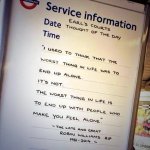 Service information
EARL'S COURTS
Date THOUGHT OF THE DAY
Time
"I USED TO THINK THAT THE
WORST THING IN LIFE WAS TO
END UP ALONE.
IT'S NOT.
THE WORST THING IN LIFE IS
TO END UP WITH PEOPLE WHO
MAKE YOU FEEL ALONE"
- THE LATE AND GREAT
ROBIN WILLIAMS RIP
1951-2014